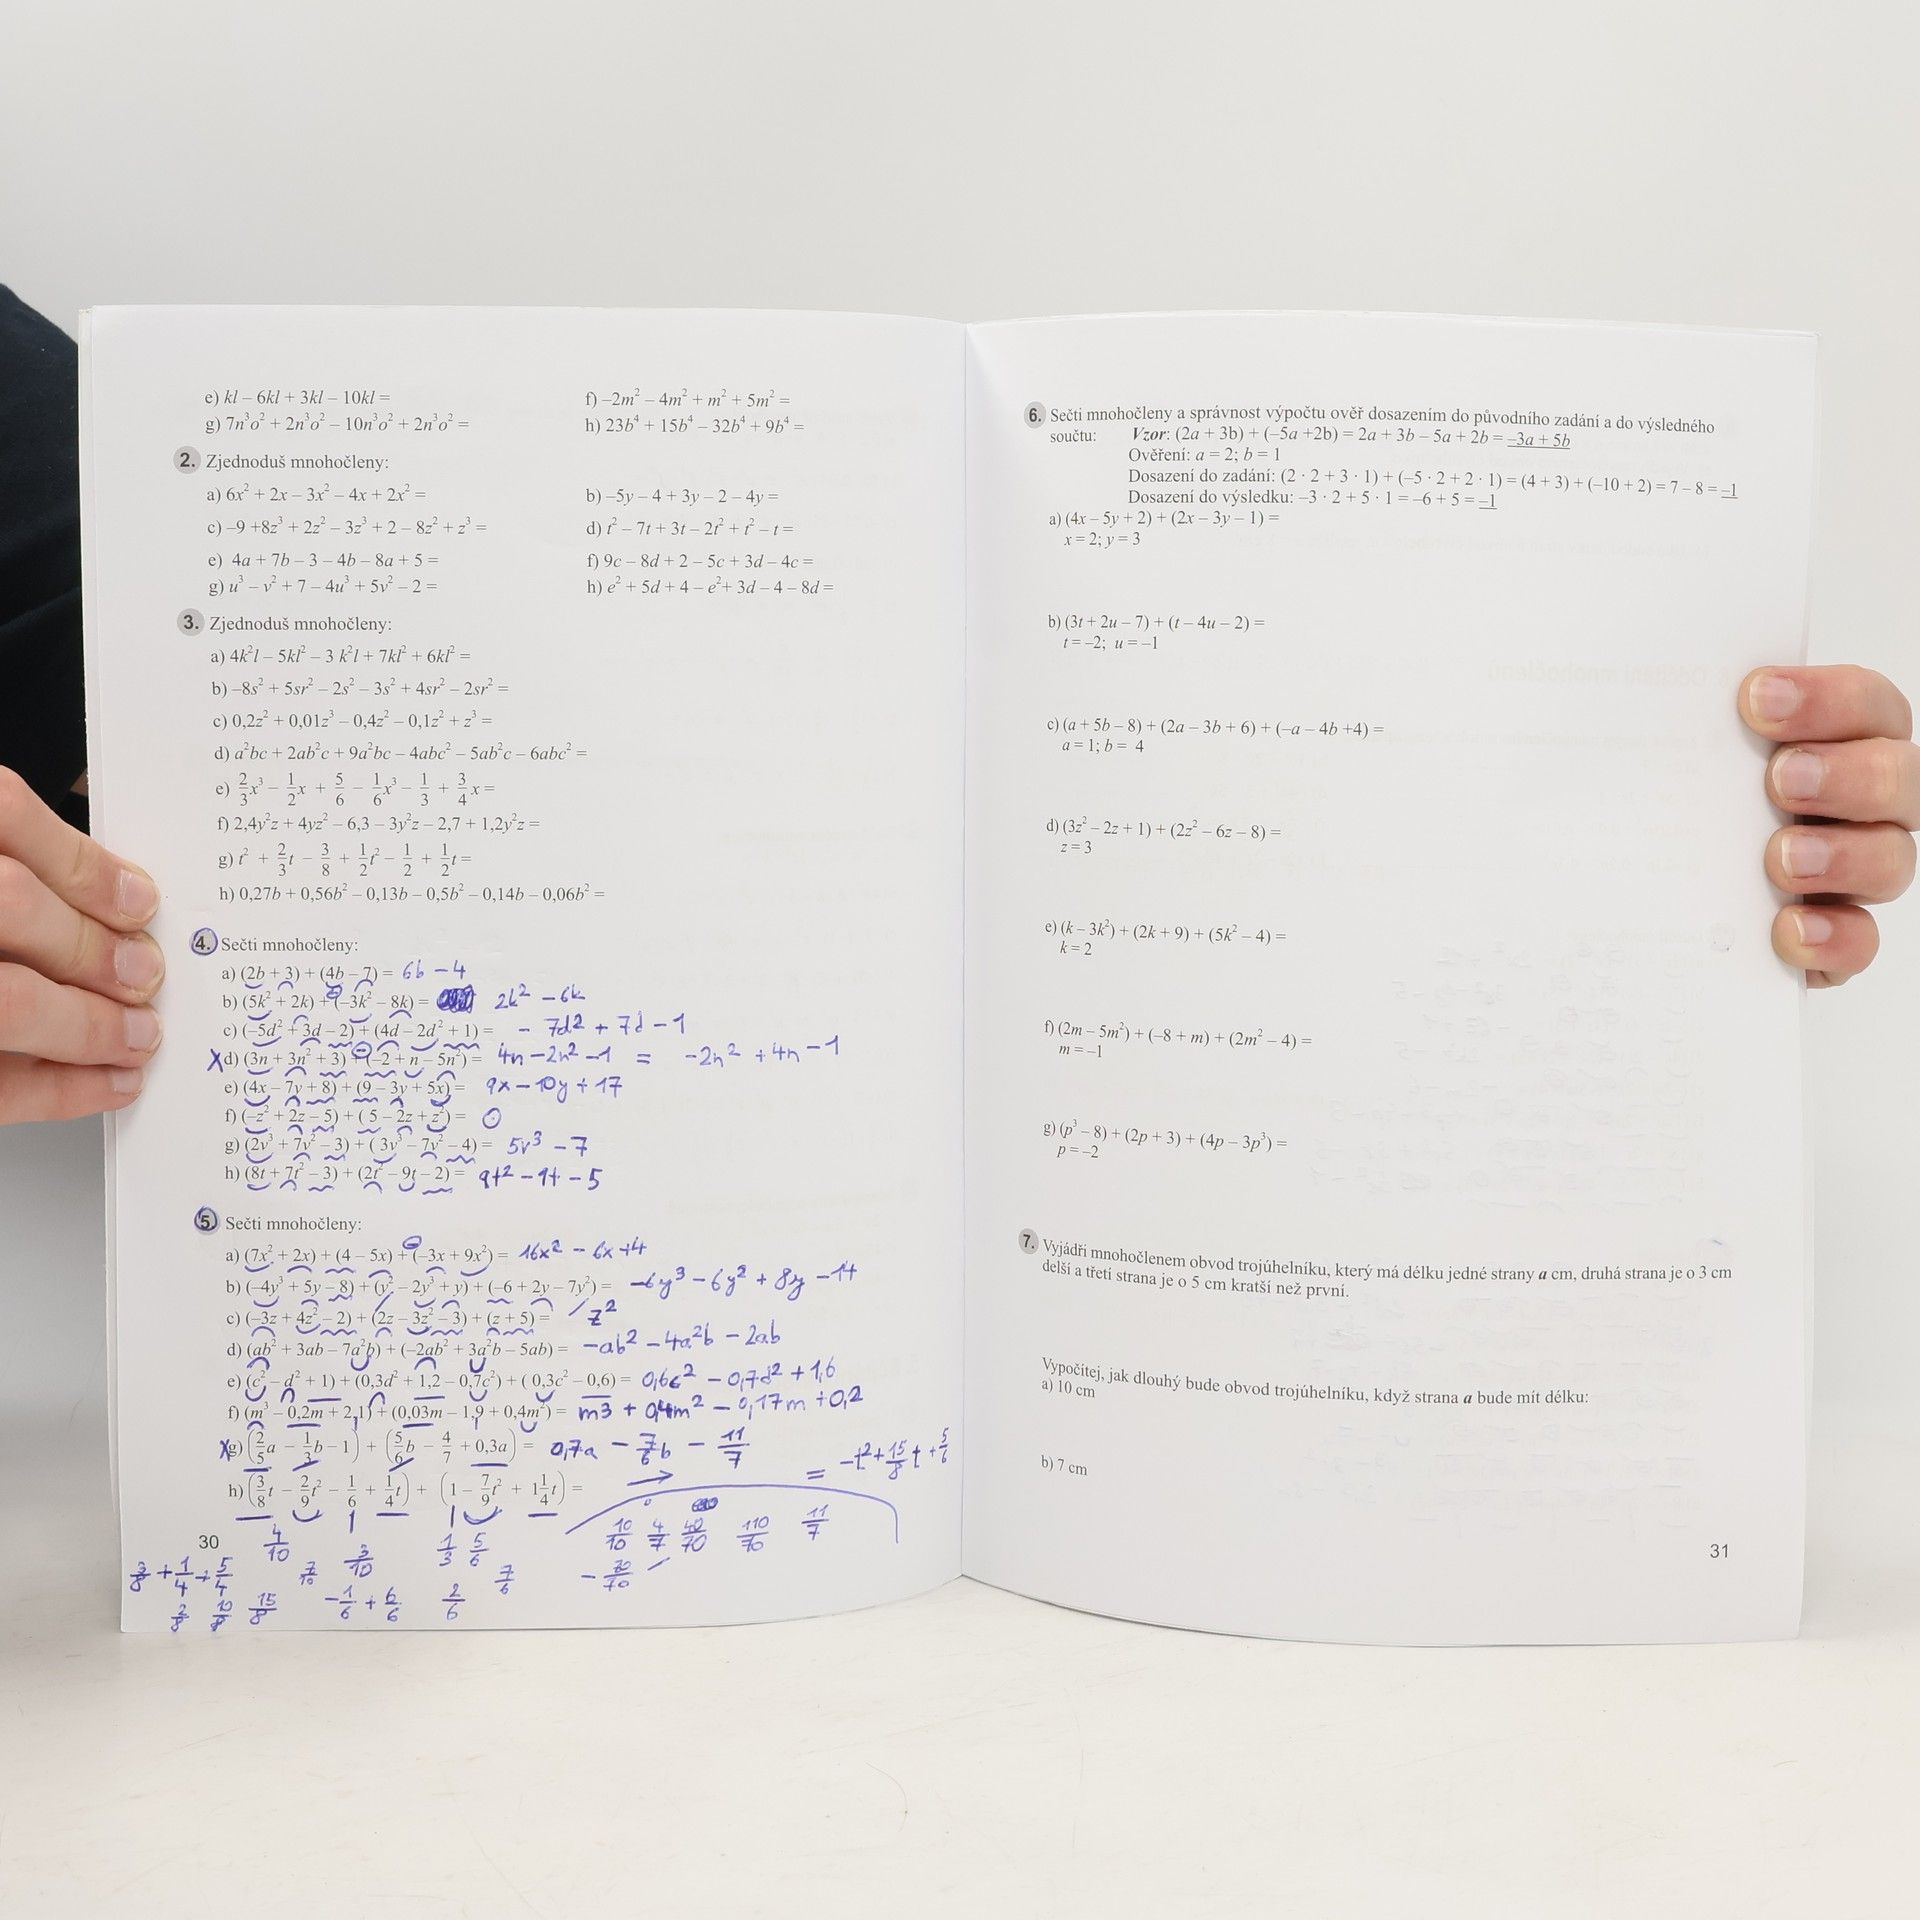 e) kl – 6kl + 3kl – 10kl =
f) –2m² – 4m² + m² + 5m² =
g) 7n³o² + 2n³o² – 10n³o² + 2n³o² =
h) 23b⁴ + 15b⁴ – 32b⁴ + 9b⁴ =
2. Zjednoduš mnohočleny:
a) 6x² + 2x – 3x² – 4x + 2x² =
b) –5y – 4 + 3y – 2 – 4y =
c) –9 +8z³ + 2z² – 3z³ + 2 – 8z² + z³ =
d) t² – 7t + 3t – 2t² + t² – t =
e) 4a + 7b – 3 – 4b – 8a + 5 =
f) 9c – 8d + 2 – 5c + 3d – 4c =
g) u³ – v² + 7 – 4u³ + 5v² – 2 =
h) e² + 5d + 4 – e²+ 3d – 4 – 8d =
3. Zjednoduš mnohočleny:
a) 4k²l – 5kl² – 3 k²l + 7kl² + 6kl² =
b) –8s² + 5sr² – 2s² – 3s² + 4sr² – 2sr² =
c) 0,2z² + 0,01z³ – 0,4z² – 0,1z² + z³ =
d) a²bc + 2ab²c + 9a²bc – 4abc² – 5ab²c – 6abc² =
e) 2/3x³ – 1/2x + 5/6 – 1/6x³ – 1/3 + 3/4x =
f) 2,4y²z + 4yz² – 6,3 – 3y²z – 2,7 + 1,2y²z =
g) t² + 2/3t – 3/8 + 1/2t² – 1/2 + 1/2t =
h) 0,27b + 0,56b² – 0,13b – 0,5b² – 0,14b – 0,06b² =
4. Sečti mnohočleny:
a) (2b + 3) + (4b – 7) = 6b – 4
b) (5k² + 2k) + (–3k² – 8k) = 2k² – 6k
c) (–5d² + 3d – 2) + (4d – 2d² + 1) = – 7d² + 7d – 1
X d) (3n + 3n² + 3) + (–2 + n – 5n²) = 4n – 2n² – 1 = –2n² + 4n – 1
e) (4x – 7y + 8) + (9 – 3y + 5x) = 9x – 10y + 17
f) (–z² + 2z – 5) + ( 5 – 2z + z²) = 0
g) (2v³ + 7v² – 3) + ( 3v³ – 7v² – 4) = 5v³ – 7
h) (8t + 7t² – 3) + (2t² – 9t – 2) = 9t² – 1t – 5
5. Sečti mnohočleny:
a) (7x² + 2x) + (4 – 5x) + (–3x + 9x²) = 16x² – 6x + 4
b) (–4y³ + 5y – 8) + (y² – 2y³ + y) + (–6 + 2y – 7y²) = –6y³ – 6y² + 8y – 14
c) (–3z + 4z² – 2) + (2z – 3z² – 3) + (z + 5) = z²
d) (ab² + 3ab – 7a²b) + (–2ab² + 3a²b – 5ab) = –ab² – 4a²b – 2ab
e) (c² – d² + 1) + (0,3d² + 1,2 – 0,7c²) + ( 0,3c² – 0,6) = 0,6c² – 0,7d² + 1,6
f) (m³ – 0,2m + 2,1) + (0,03m – 1,9 + 0,4m²) = m3 + 0,4m² – 0,17m + 0,2
X g) (2/5a – 1/3b – 1) + (5/6b – 4/7 + 0,3a) = 0,7a – 7/6b – 11/7
h) (3/8t – 2/9t² – 1/6 + 1/4t) + (1 – 7/9t² + 1 1/4t) = = –t² + 15/8t + 5/6
4/10 1/3 5/6 10/10 4/7 40/70 110/70 11/7
30
3/8 + 1/4 + 5/4 7/10 3/10 7/6 – 70/70
2/8 10/8 15/8 – 1/6 + 6/6 2/6
6. Sečti mnohočleny a správnost výpočtu ověř dosazením do původního zadání a do výsledného
součtu: Vzor: (2a + 3b) + (–5a +2b) = 2a + 3b – 5a + 2b = –3a + 5b
Ověření: a = 2; b = 1
Dosazení do zadání: (2 · 2 + 3 · 1) + (–5 · 2 + 2 · 1) = (4 + 3) + (–10 + 2) = 7 – 8 = –1
Dosazení do výsledku: –3 · 2 + 5 · 1 = –6 + 5 = –1
a) (4x – 5y + 2) + (2x – 3y – 1) =
x = 2; y = 3
b) (3t + 2u – 7) + (t – 4u – 2) =
t = –2; u = –1
c) (a + 5b – 8) + (2a – 3b + 6) + (–a – 4b +4) =
a = 1; b = 4
d) (3z² – 2z + 1) + (2z² – 6z – 8) =
z = 3
e) (k – 3k²) + (2k + 9) + (5k² – 4) =
k = 2
f) (2m – 5m²) + (–8 + m) + (2m² – 4) =
m = –1
g) (p³ – 8) + (2p + 3) + (4p – 3p³) =
p = –2
7. Vyjádři mnohočlenem obvod trojúhelníku, který má délku jedné strany a cm, druhá strana je o 3 cm
delší a třetí strana je o 5 cm kratší než první.
Vypočítej, jak dlouhý bude obvod trojúhelníku, když strana a bude mít délku:
a) 10 cm
b) 7 cm
31